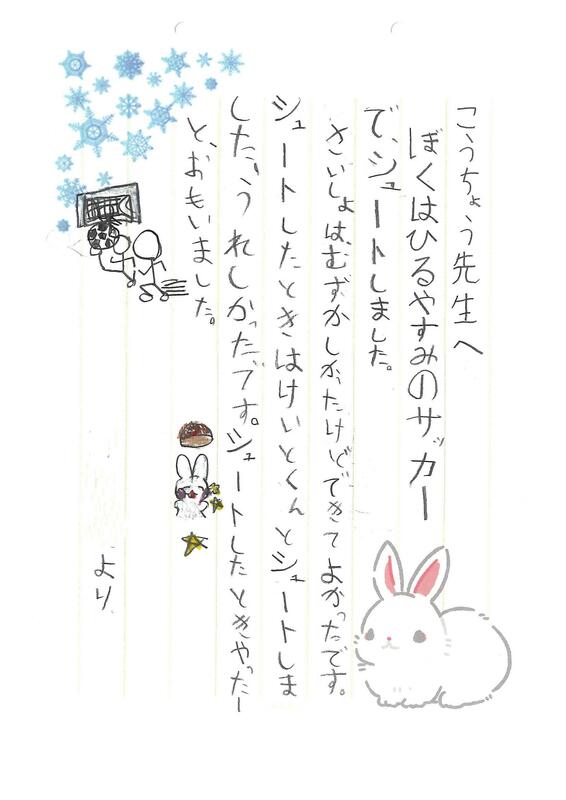 こうちょう先生へ
ぼくはひるやすみのサッカー
で、シュートしました。
さいしょは、むずかしかったけどできてよかったです。
シュートしたときはけいとくんとシュートしま
した、うれしかったです。シュートしたときやったー
と、おもいました。
より